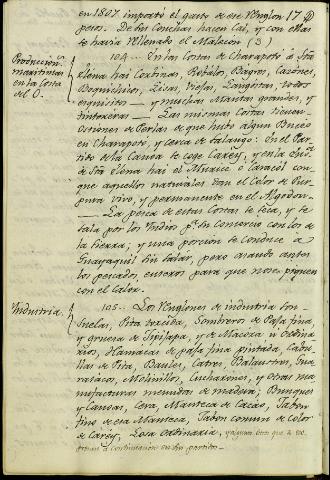 en 1807 importó el gasto de este Renglon 17 @
pesos. De las conchas hacen Cal, y con ellas
se havia rellenado el Malecon (3)
Produccion.s
maritimas
en la Costa
del O.
104... En las Costas de Charapotó à Sta
elena hai Corbinas, Robalos, Bagres, Cazones,
Boquichicos, Lizas, Viejas, Lenguitas, todos
exquisitos — y muchas Mantas grandes, y
tintoreras — Las mismas Costas tienen
Ostiones de Perlas de que hubo algun Buceo
en Charapotó, y cerca de Salango: En el Par
tido de la Canoa se coge Carey, y en la
de Sta Elena hai el Murice ó Caracol con
que aquellos naturales dan el Color de Pur
pura vivo, y permanente en el Algodon
— La pesca de estas Costas se seca, y se
sala por los Yndios pa. su Comercio con los de
la tierra, y una porcion se conduce a
Guayaquil sin salar, pero asando antes
los pescados enteros para que no se piquen
con el Calor.
Yndustria.
105... Los Renglones de industria son
Suelas, Pita torcida, Sombreros de Paja fina,
y gruesa de Jipijapa, y de Mocora ù ordina
rios, Hamacas de paja fina pintada, Cabu
llas de Pita, Baules, Catres, Balaustres, Gua
racacos, Molinillos, Cucharones, y otras ma
nufacturas menudas de madera; Bunques
y Canoas, Cera, Manteca de Cacao, Jabon
fino de esa Manteca, Jabon comun de color
de Carey, Losa Ordinaria, y algunas otras que se
continuacion en sus partidos.